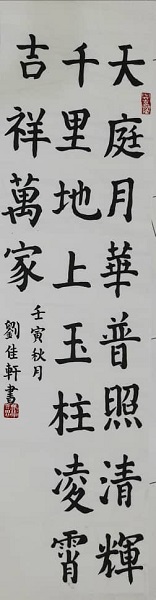 天庭月華普照清輝
千里地上玉柱凌霄
吉祥萬家
壬寅秋月
劉佳軒書